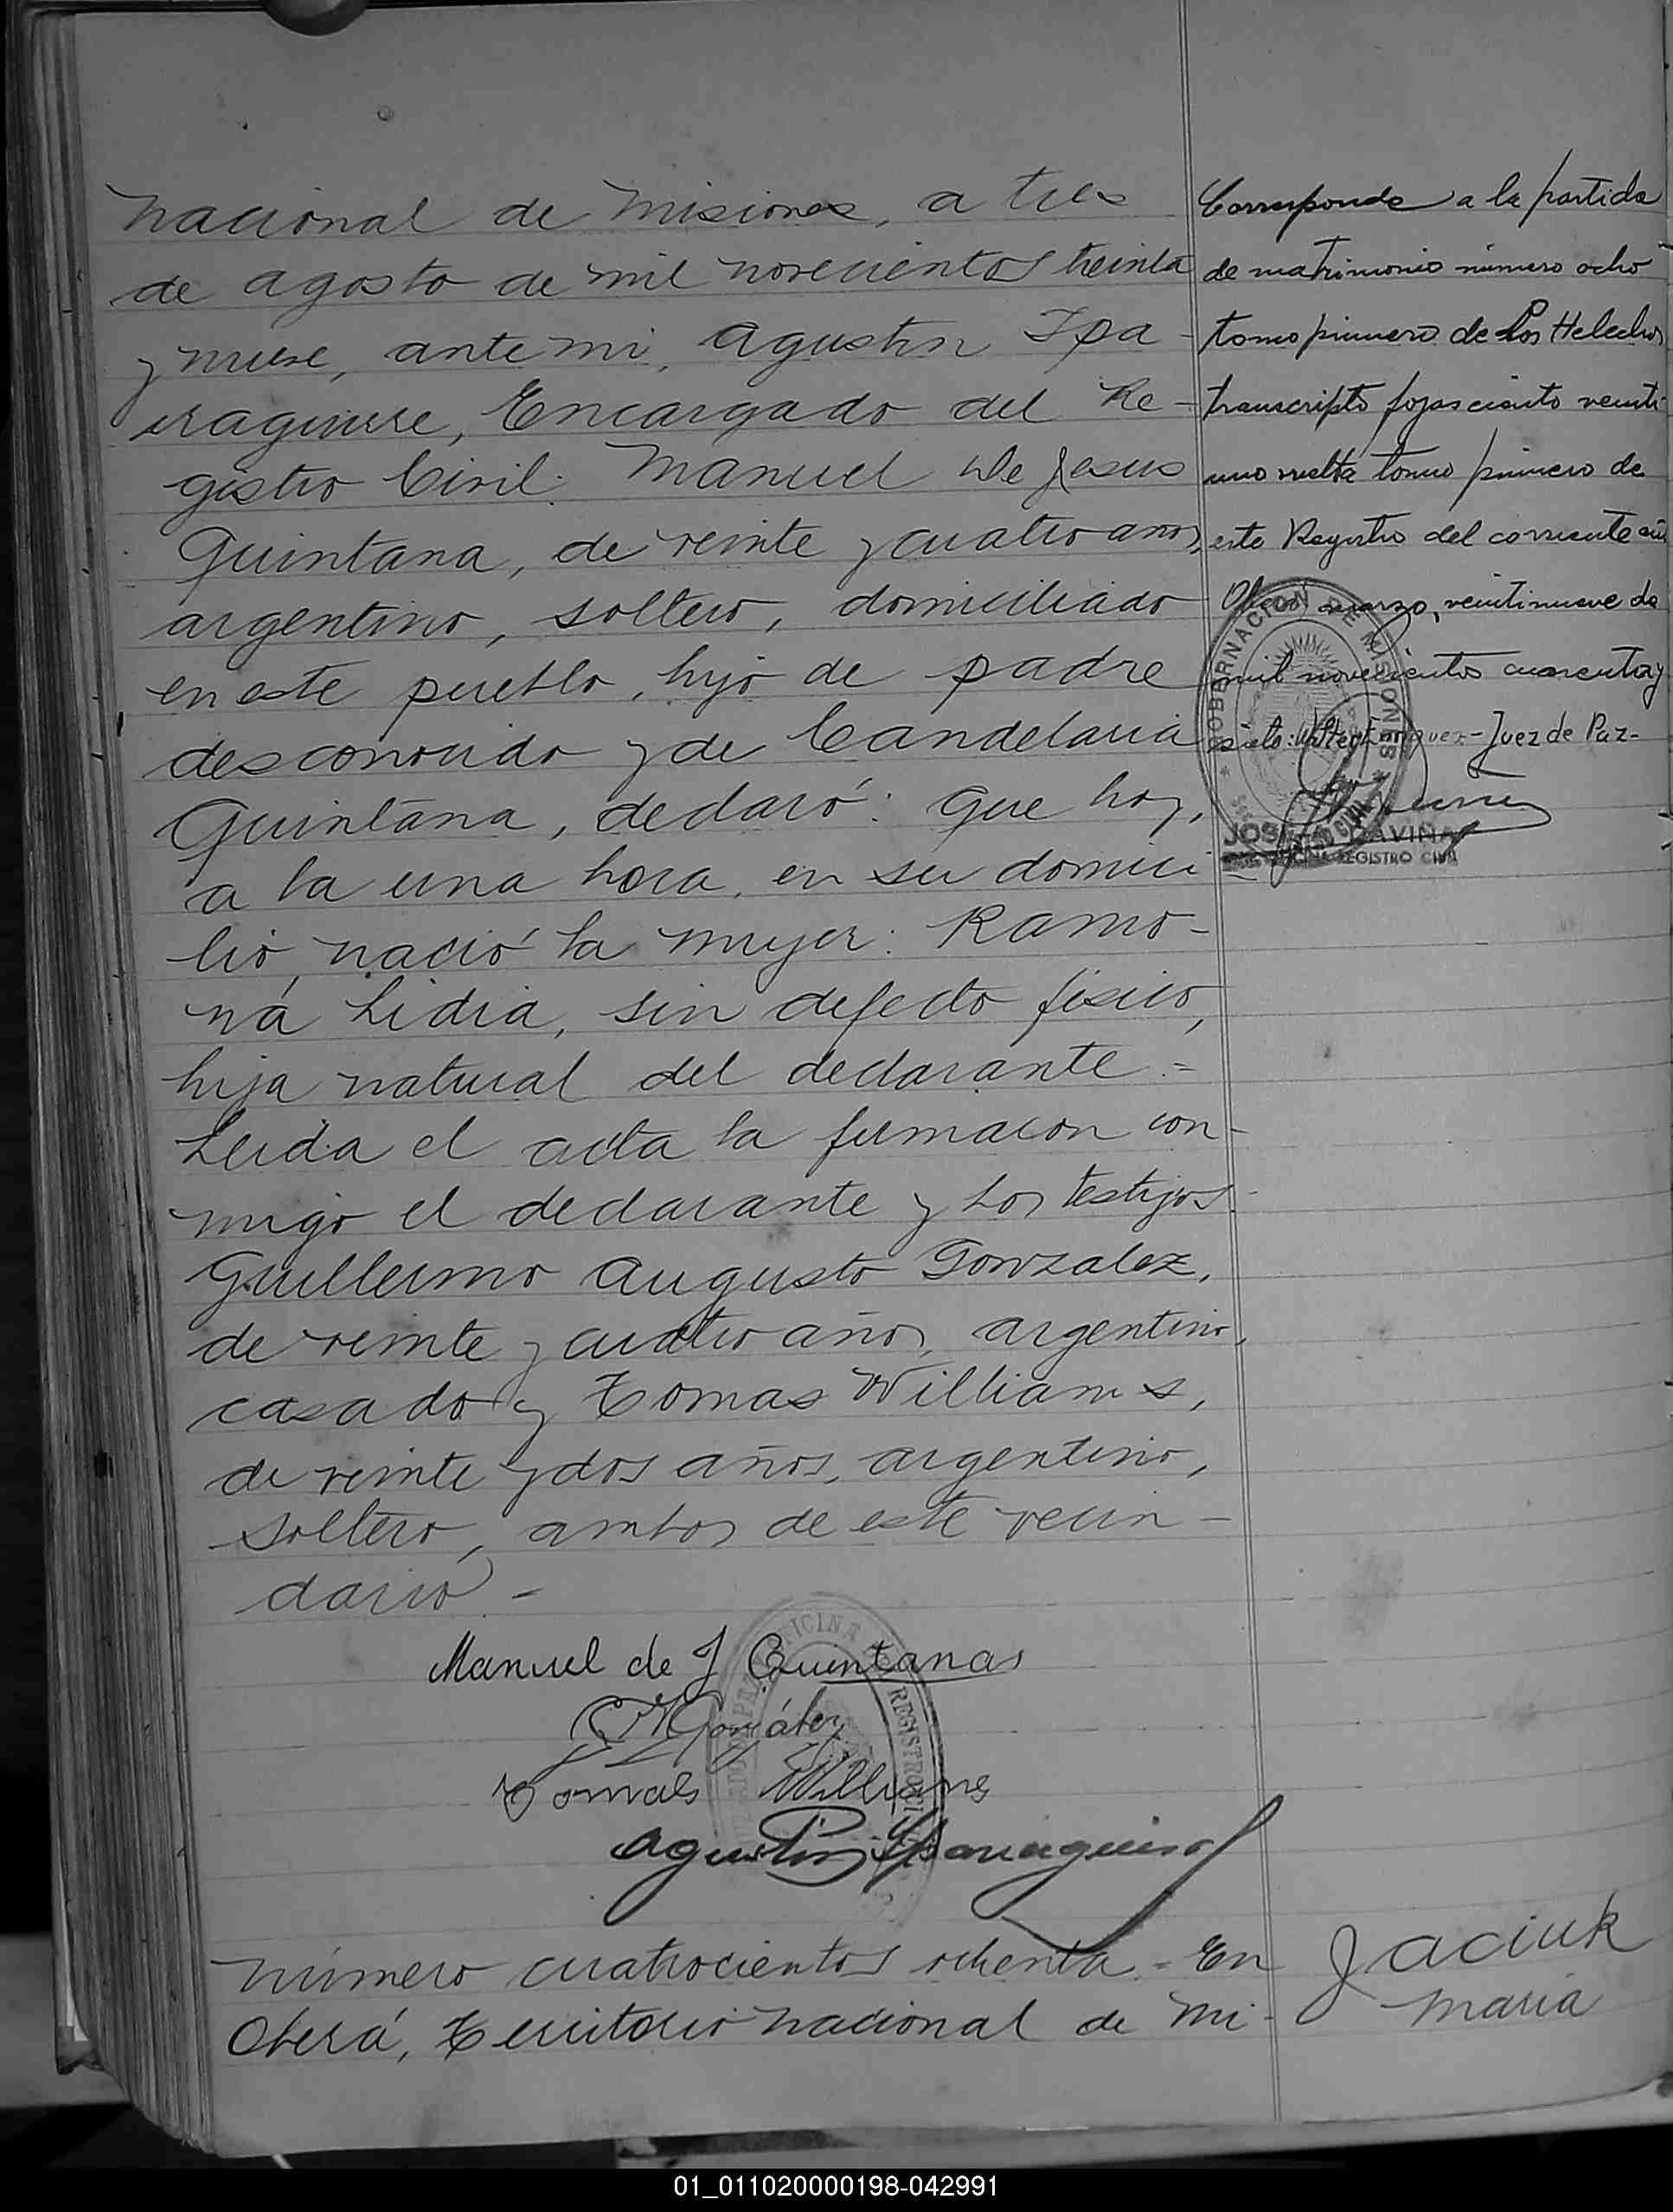 nacional de Misiones, a tres
de agosto de mil novecientos treinta
y nueve, ante mi, Agustin Ipa-
rraguirre, Encargado del Re-
gistro Civil: Manuel De Jesus
Quintana, de veinte y cuatro años,
argentino, soltero, domiciliado
en este pueblo, hijo de padre
desconocido y de Candelaria
Quintana, declaró: Que hoy,
a la una hora, en su domici-
lio, nació la mujer: Ramo-
na Lidia, sin defecto fisico,
hija natural del declarante.=
Leida el acta la firmaron con-
migo el declarante y los testigos:
Guillermo Augusto Gonzalez,
de veinte y cuatro años, argentino,
casado y Tomas Williams,
de veinte y dos años, argentino,
soltero, ambos de este vecin-
dario.-
Manuel de J Quintanas
González
Tomas Williams
Agustin Iparraguirre
OFICINA REGISTRO CIVIL
Corresponde a la partida
de matrimonio número ocho
tomo primero de Los Helechos
transcripto fojas ciento veinti-
uno vuelta tomo primero de
este Registro del corriente año
Oberá marzo, veintinueve de
mil novecientos cuarenta y
siete: - Juez de Paz-
GOBERNACION DE MISIONES
JOSE GAVIÑA
REGISTRO CIVIL
Número cuatrocientos ochenta.- En
Oberá, Territorio nacional de Mi-
Jaciuk
Maria
01_011020000198-042991